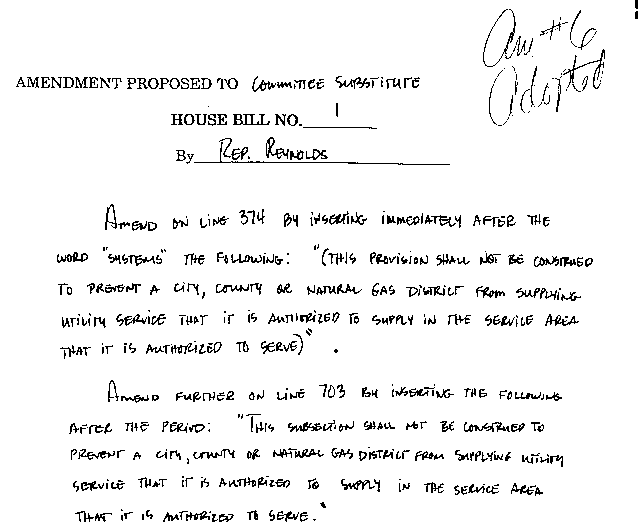 Am #6
Adopted
AMENDMENT PROPOSED TO COMMITTEE SUBSTITUTE
HOUSE BILL NO. 1
By REP. REYNOLDS
AMEND ON LINE 374 BY INSERTING IMMEDIATELY AFTER THE
WORD "SYSTEMS" THE FOLLOWING: "(THIS PROVISION SHALL NOT BE CONSTRUED
TO PREVENT A CITY, COUNTY OR NATURAL GAS DISTRICT FROM SUPPLYING
UTILITY SERVICE THAT IT IS AUTHORIZED TO SUPPLY IN THE SERVICE AREA
THAT IT IS AUTHORIZED TO SERVE)".
AMEND FURTHER ON LINE 703 BY INSERTING THE FOLLOWING
AFTER THE PERIOD: "THIS SUBSECTION SHALL NOT BE CONSTRUED TO
PREVENT A CITY, COUNTY OR NATURAL GAS DISTRICT FROM SUPPLYING UTILITY
SERVICE THAT IT IS AUTHORIZED TO SUPPLY IN THE SERVICE AREA
THAT IT IS AUTHORIZED TO SERVE."